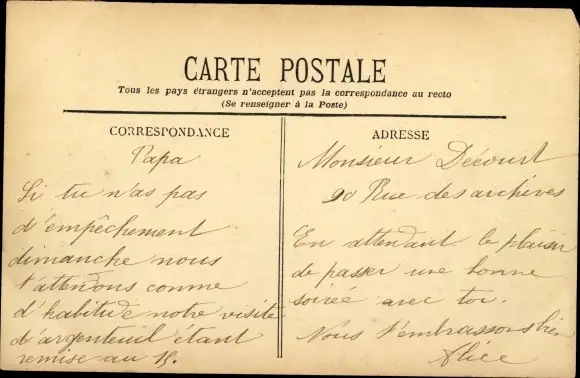 CARTE POSTALE
Tous les pays étrangers n'acceptent pas la correspondance au recto
(Se renseigner à la Poste)
CORRESPONDANCE
Papa
Si tu n'as pas
d'empêchement
dimanche nous
t'attendons comme
d'habitude notre visite
d'argenteuil étant
remise au 15.
ADRESSE
Monsieur Décourt
90 Rue des archives
En attendant le plaisir
de passer une bonne
soirée avec toi.
Nous t'embrassons bien
Alice